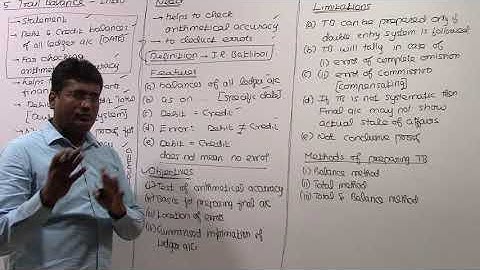 5. Trail Balance - Intro
→ Statement
→ Debit & Credit balances
of all ledger a/c [DATE]
→ For checking
arithmetical accuracy
→ helps
finan
→ Debit
→ Debit
Need
→ helps to check
arithmetical accuracy
→ to deduct errors
Definition → J.R. Batliboi
Features
(a) balances of all ledger a/c
(b) as on ... [specific date]
(c) Debit = Credit
(d) Error: Debit ≠ Credit
(e) Debit = Credit
does not mean no error
Objectives
(i) Test of arithmetical accuracy
(ii) Basis for preparing final a/c
(iii) Location of errors
(iv) Summarised information of
ledger a/c
Limitations
(a) TB can be prepared only if
double entry system is followed
(b) TB will tally in case of
(i) error of complete omission
(c) (ii) error of commission
[compensating]
(d) If TB is not systematic then
Final a/c may not show
actual state of affairs
(e) Not conclusive proof
Methods of preparing TB
(i) Balance method
(ii) Total method
(iii) Total & Balance method